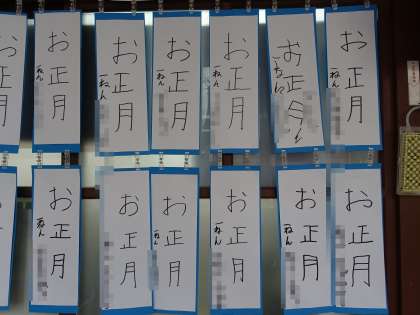 お正月
お正月
一ねん
お正月
一ねん
お正月
一ねん
お正月
一ねん
お正月
お正月
一ねん
お正月
一ねん
お正月
お正月
一ねん
お正月
一ねん
お正月
一ねん
お正月